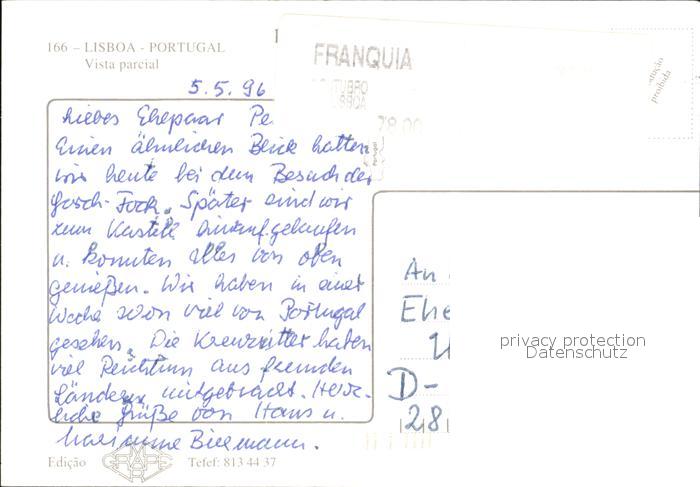 166 – LISBOA - PORTUGAL
Vista parcial
FRANQUIA
OUTUBRO
LISBOA
78.00
Portugal
proibida
5.5.96
Liebes Ehepaar Pe
Einen ähnlichen Blick hatten
wir heute bei dem Besuch der
Gorch-Fock. Später sind wir
zum Kastell hinaufgelaufen
u. konnten alles von oben
genießen. Wir haben in einer
Woche schon viel von Portugal
gesehen. Die Kreuzritter haben
viel Reichtum aus fremden
Ländern mitgebracht. Herz-
liche Grüße von Hans u.
Marianne Biermann.
An
Ehe
D-
28
privacy protection
Datenschutz
Edição
Telef: 813 44 37